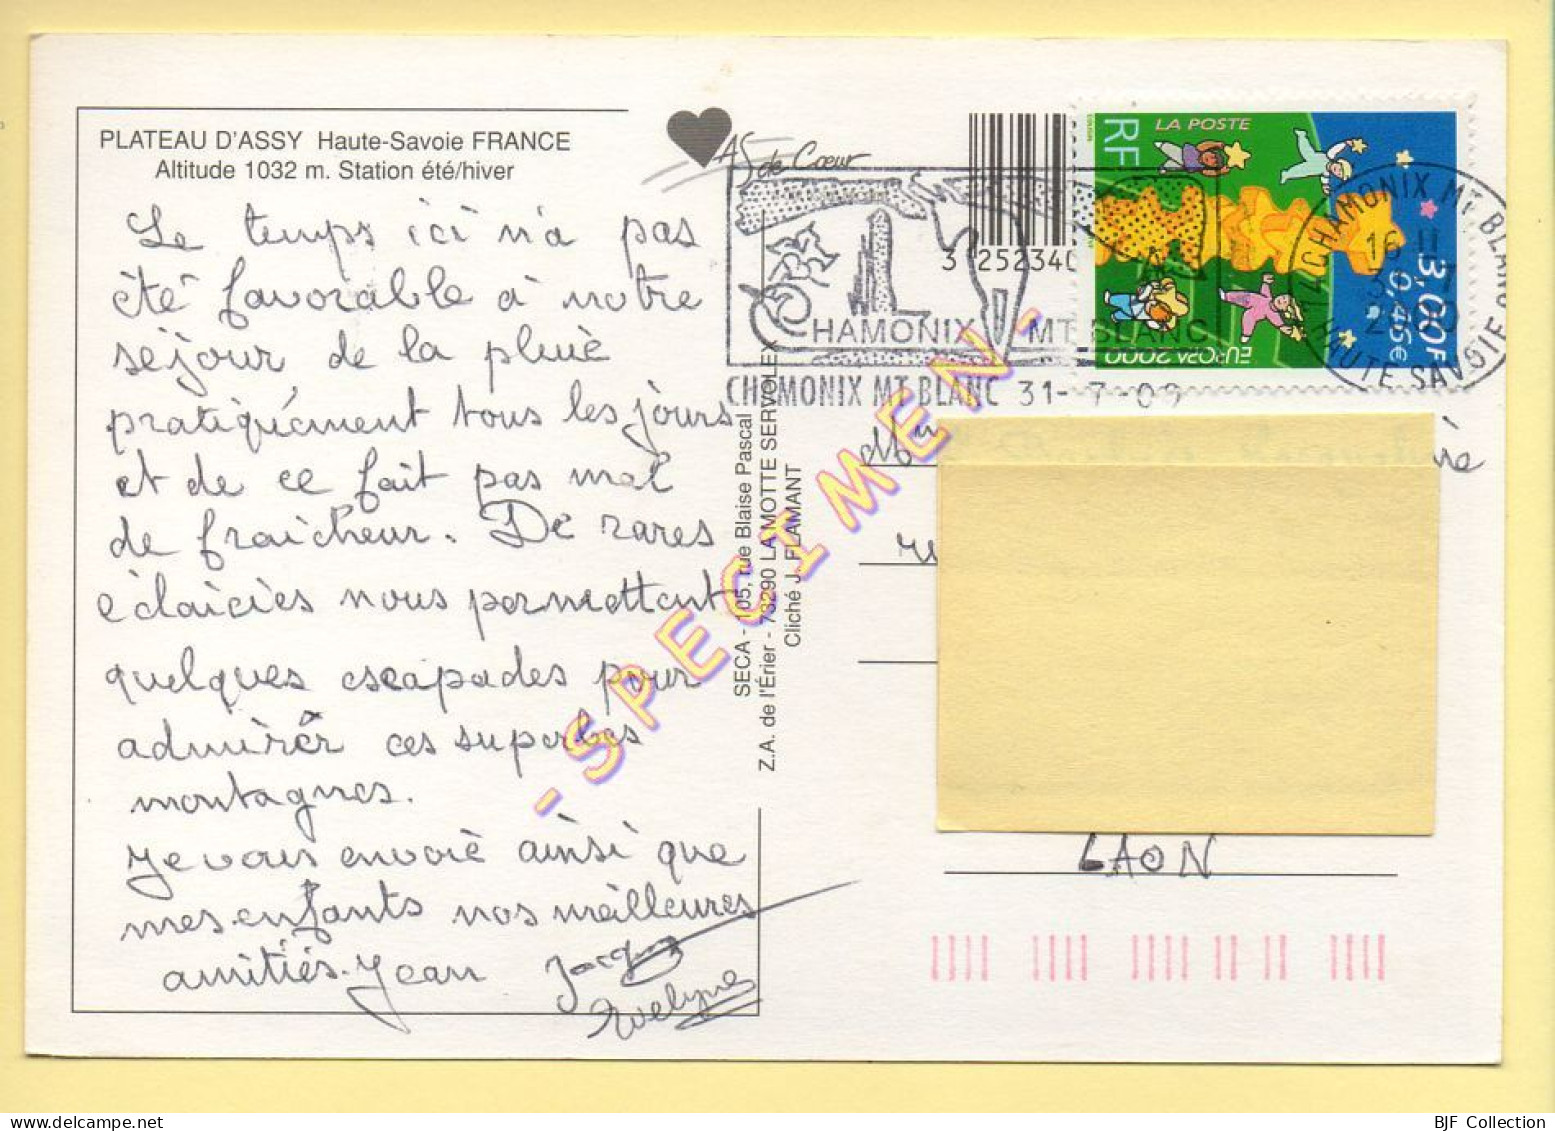 PLATEAU D'ASSY Haute-Savoie FRANCE
Altitude 1032 m. Station été/hiver
Le temps ici n'a pas
été favorable à notre
séjour de la pluie
pratiquement tous les jours
et de ce fait pas mal
de fraicheur. De rares
éclaicies nous permettent
quelques escapades pour
admirer ces superbes
montagnes.
Je vous envoie ainsi que
mes enfants nos meilleures
amitiés. Jean Jacques
Evelyne
AS de Cœur
3 252340
CHAMONIX MT BLANC
CHAMONIX MT BLANC 31-7-00
SECA - 105, rue Blaise Pascal
Z.A. de l'Érier - 73290 LA MOTTE SERVOLEX
Cliché J. FLAMANT
- SPECIMEN -
RF
LA POSTE
3,00F
0,45€
EUROPA 2000
74 CHAMONIX MT BLANC
HAUTE SAVOIE
LAON
BJF Collection